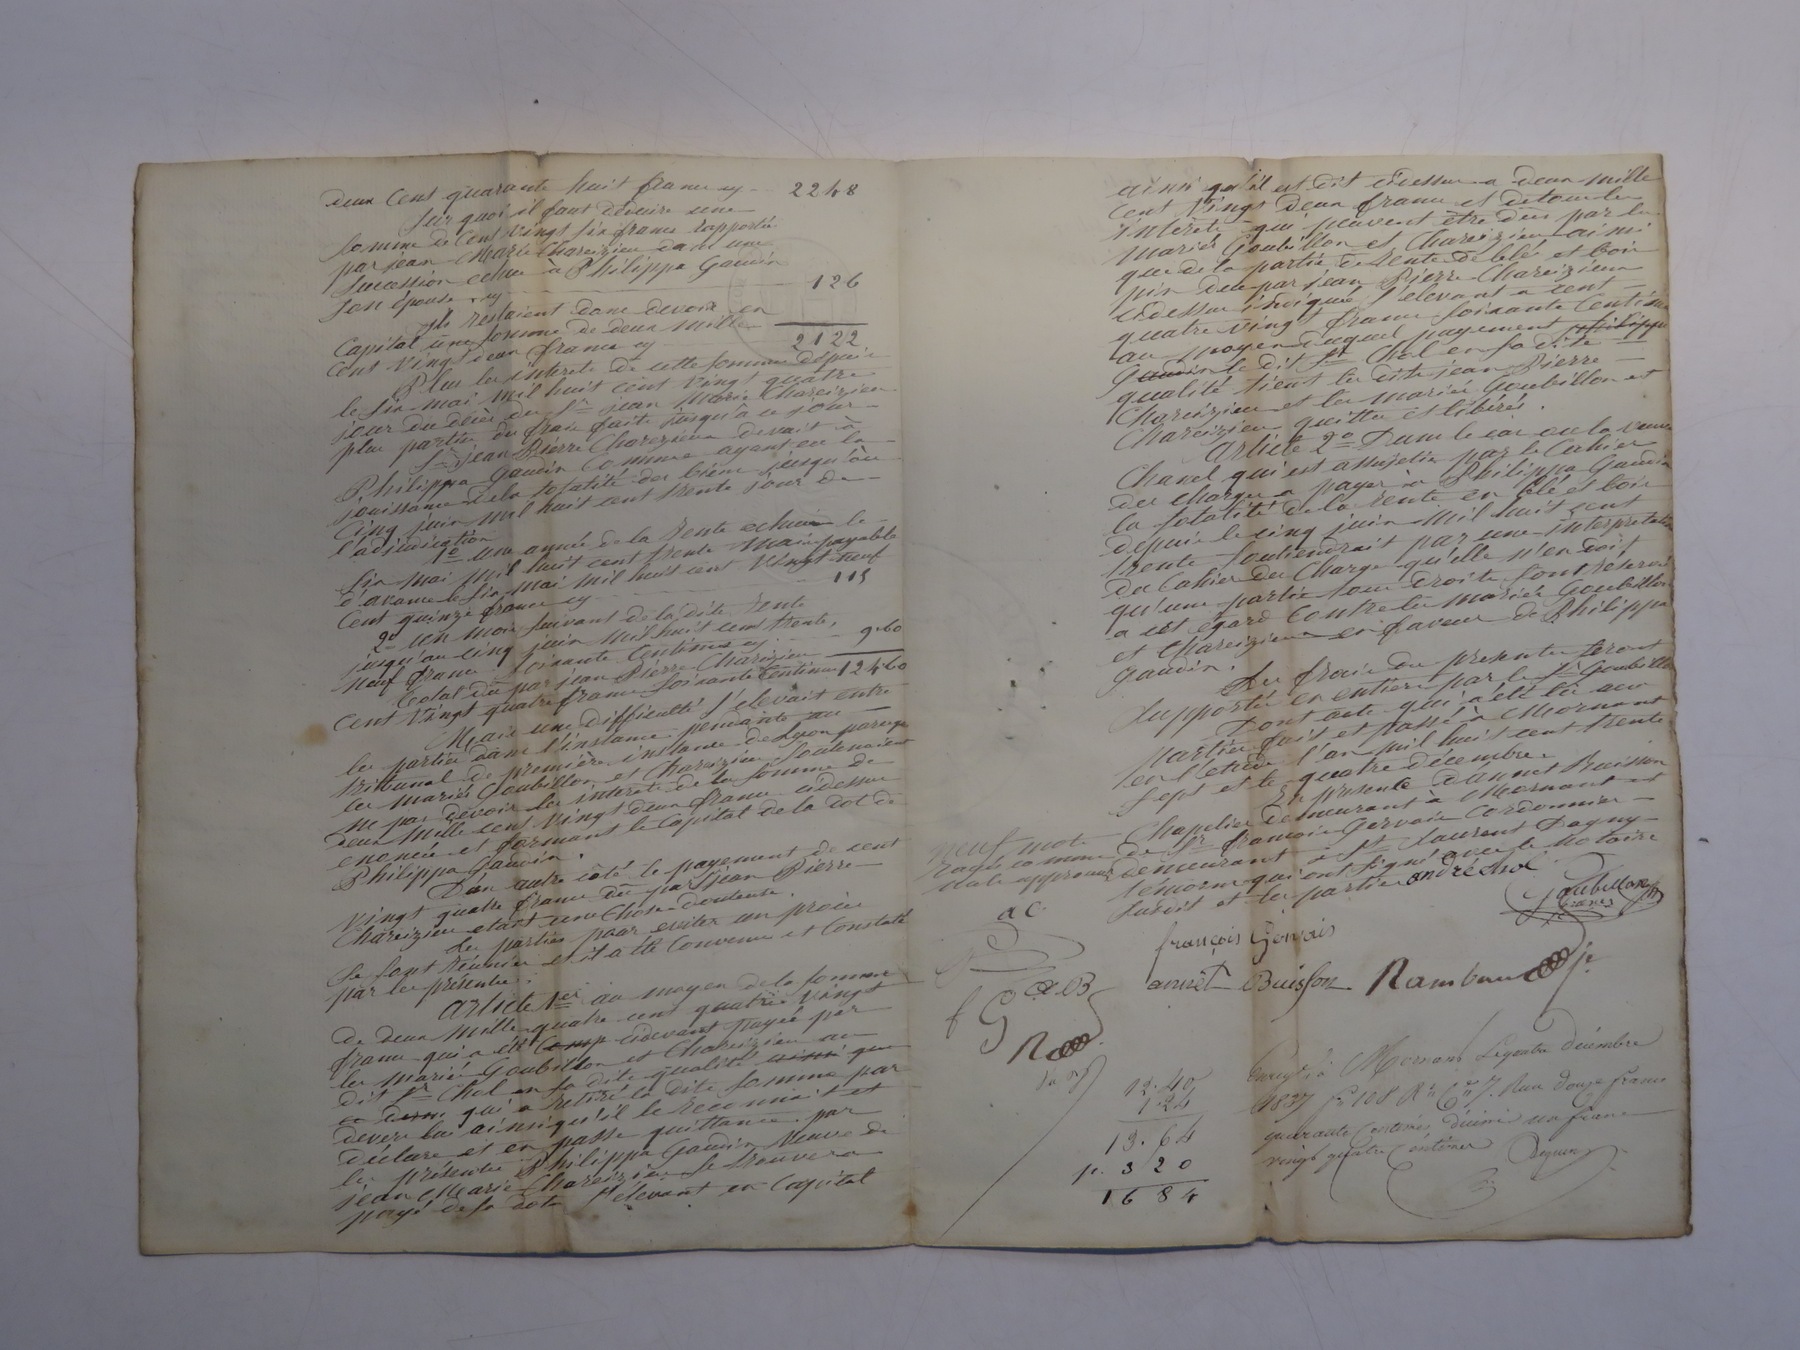 deux Cent quarante huit francs cy - 2248
Sur quoi il faut déduire une
somme de Cent vingt six francs rapportée
par jean Marie Chareizieu dans une
succession echue à Philippa Gaudin
son épouse cy 126
ils restaient donc devoir en
Capital une somme de deux mille
Cent vingt deux francs cy 2122
Plus les interets de cette somme depuis
le six mai mil huit cent vingt quatre
jour du décès du Sr jean Marie Chareizieu
plus partie des frais faits jusqu'à ce jour
Sr jean Pierre Chareizieu devait à
Philippa Gaudin Comme ayant eu la
jouissance de la totalité des biens jusqu'au
Cinq juin mil huit cent trente jour de
l'adjudication
1º une année de la rente echue le
six mai mil huit cent trente mais payable
d'avance le six mai mil huit cent vingt-neuf
Cent quinze francs cy 115
2º un mois suivant de la dite rente
jusqu'au cinq juin mil huit cent trente,
neuf francs soixante Centimes cy 9.60
Total dû par jean Pierre Chareizieu
Cent vingt quatre francs soixante Centimes 124 60
Mais une difficulté s'élevait entre
les parties dans l'instance pendante au
tribunal de première instance de Lyon parceque
les mariés Goubillon et Chareizieu Soutenaient
ne pas devoir les interets de la somme de
deux mille cent vingt deux francs cidessus
enoncée et formant le Capital de la dot de
Philippa Gaudin.
D'un autre coté le payement de cent
vingt quatre francs dû par jean Pierre
Chareizieu etant une Chose douteuse.
Les parties pour eviter un procès
se sont réunies et il a été Convenu et Constaté
par les présentes:
Article 1er au moyen de la somme
de deux mille quatre cent quatre vingt
francs qui a été Comp cidevant payée par
les mariés Goubillon et Chareizieu au
dit Sr Chol en sa dite qualité ainsi que
qui a retiré la dite somme par
devers lui ainsi qu'il le reconnait et
déclare et en passe quittance par
les présentes Philippa Gaudin veuve de
jean Marie Chareizieu se trouvera
payée de sa dot s'élevant en Capital
ainsi qu'il est dit cidessus a deux mille
cent vingt deux francs et de tous les
interets qui peuvent être dus par les
mariés Goubillon et Chareizieu ainsi
que de la partie de rente de blé et bois
pris due par jean Pierre Chareizieu
cidessus indiquée s'elevant a cent
quatre vingt francs soixante Centimes
au moyen duquel payement philippa
Gaudin le dit Sr Chol en sa dite
qualité tient les dits jean Pierre
Chareizieu et les mariés Goubillon et
Chareizieu quittes et libérés.
Article 2º Dans le cas ou la veuve
Chavel qui est assujetie par le Cahier
des charges a payer à Philippa Gaudin
la totalité de la rente en blé et bois
depuis le cinq juin mil huit cent
trente soutiendrait par une interpretation
du Cahier des Charges qu'elle n'en doit
qu'une partie tous droits sont reservés
a cet égard contre les mariés Goubillon
et Chareizieu en faveur de Philippa
Gaudin.
Les frais des presentes seront
supportés en entier par le Sr Goubillon
Dont acte qui a été lu aux
parties fait et passé à Mornant
en l'étude l'an mil huit cent trente
sept et le quatre décembre
En présence d'annet Buisson
Chapelier demeurant à Mornant et
de Sr françois Gervais Cordonnier
demeurant à St laurent Dagny
témoins qui ont signé avec le Notaire
susdit et les parties andré chol
neuf mots
rayés comme
nuls approuvés
a C
Goubillon
francs
françois Gervais
annet Buisson Rambaud
a B
f G
R
12.40
1 24
13.64
p. 3 20
16 84
Enregé à Mornant Le quatre décembre
1837 fo 108 Ro Ces 7. Reçu douze francs
quarante Centimes, décime un franc
vingt quatre Centimes